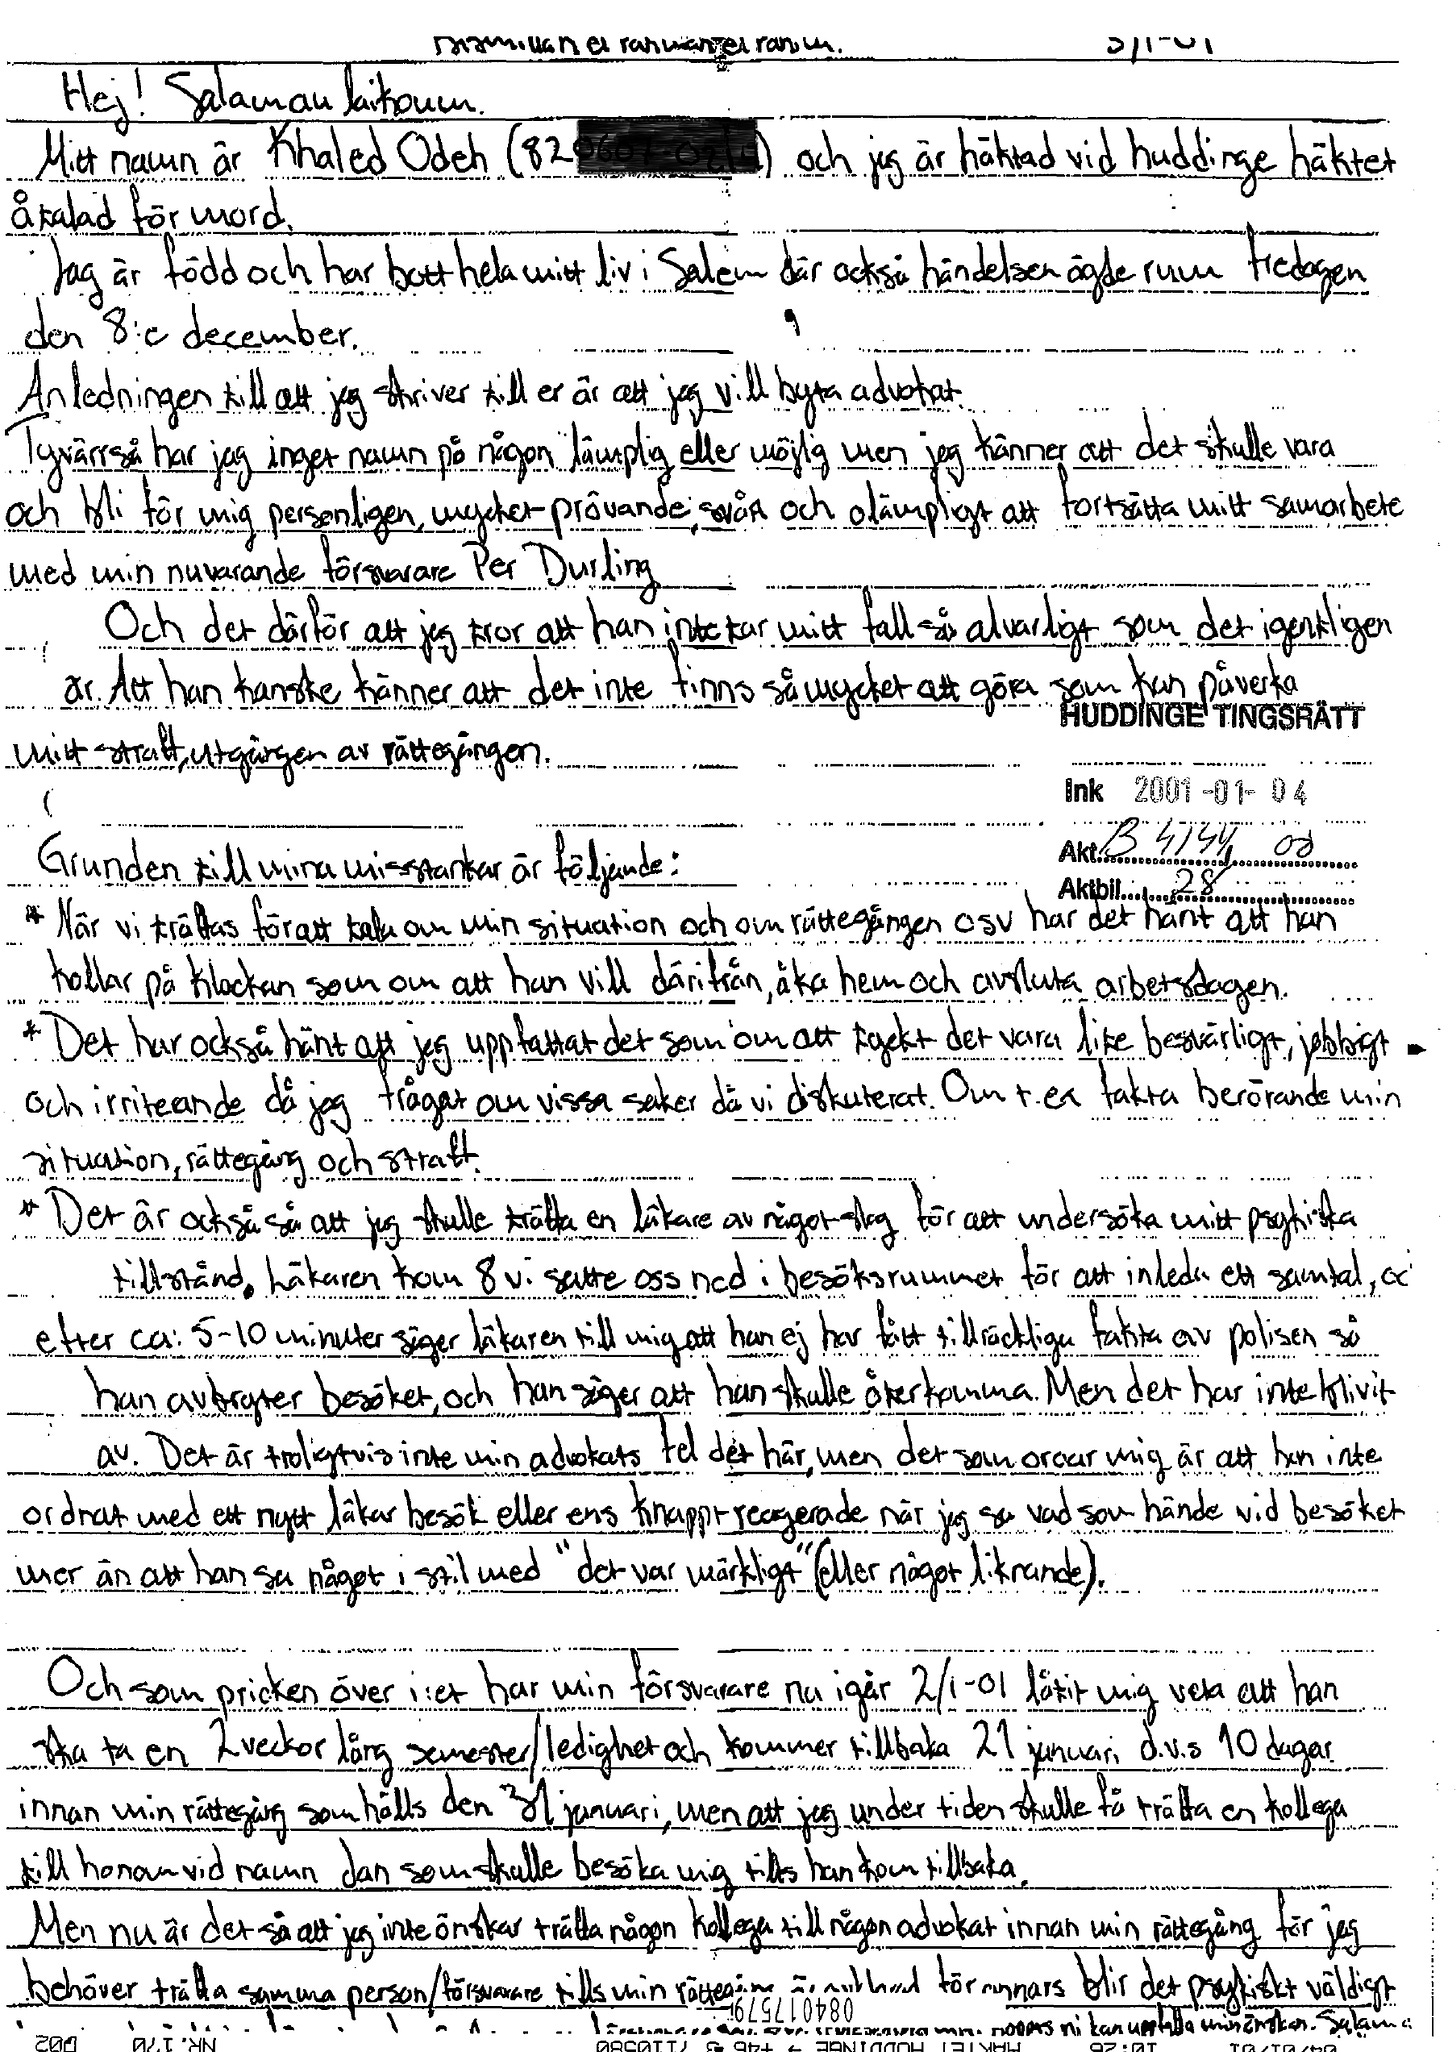 3/1-01
Hej! Salamau laikoum.
Mitt namn är Khaled Odeh (82 ) och jag är häktad vid huddinge häktet
åkalad för mord.
Jag är född och har bott hela mitt liv i Salem där också händelsen ägde rum fredagen
den 8:e december.
Anledningen till att jag skriver till er är att jag vill byta advokat.
Tyvärr så har jag inget namn på någon lämplig eller möjlig men jag känner att det skulle vara
och bli för mig personligen, mycket prövande, svårt och olämpligt att fortsätta mitt samarbete
med min nuvarande försvarare Per Durling
Och det därför att jag tror att han inte tar mitt fall så alvarligt som det igenkligen
är. Att han kanske känner att det inte finns så mycket att göra som kan påverka
HUDDINGE TINGSRÄTT
mitt straff, utgången av rättegången.
Ink 2001-01-04
Akt. B 4144
Grunden till mina misstankar är följande:
Aktbil. 28
* När vi träffas för att tala om min situation och om rättegången osv har det hänt att han
kollar på klockan som om att han vill därifrån, åka hem och avsluta arbetsdagen.
* Det har också hänt att jag uppfattat det som om att tyckt det vara lite besvärligt, jobbigt
och irriteande då jag frågat om vissa saker då vi diskuterat. Om t.ex fakta berörande min
situation, rättegång och straff.
* Det är också så att jag skulle träffa en läkare av något slag för att undersöka mitt psykiska
tillstånd. Läkaren kom & vi satte oss ned i besöksrummet för att inleda ett samtal, oc
efter ca: 5-10 minuter säger läkaren till mig att han ej har fått tillräckliga fakta av polisen så
han avbryter besöket, och han säger att han skulle återkomma. Men det har inte blivit
av. Det är troligtvis inte min advokats fel det här, men det som oroar mig är att han inte
ordnat med ett nytt läkar besök eller ens knappt reagerade när jag sa vad som hände vid besöket
mer än att han sa något i stil med "det var märkligt" (eller något liknande).
Och som pricken över i:et har min försvarare nu igår 2/1-01 låtit mig veta att han
ska ta en 2 veckor lång semester/ledighet och kommer tillbaka 21 januari d.v.s 10 dagar
innan min rättegång som hålls den 31 januari, men att jag under tiden skulle få träffa en kollega
till honom vid namn dan som skulle besöka mig tills han kom tillbaka.
Men nu är det så att jag inte önskar träffa någon kollega till någon advokat innan min rättegång för jag
behöver träffa samma person/försvarare tills min för annars blir det psykiskt väldigt
0840175791
hoppas ni kan uppfylla min önskan. Salama
04/01/01 10:26 HÄKTET HUDDINGE → +46 8 7110580 NR.170 D02